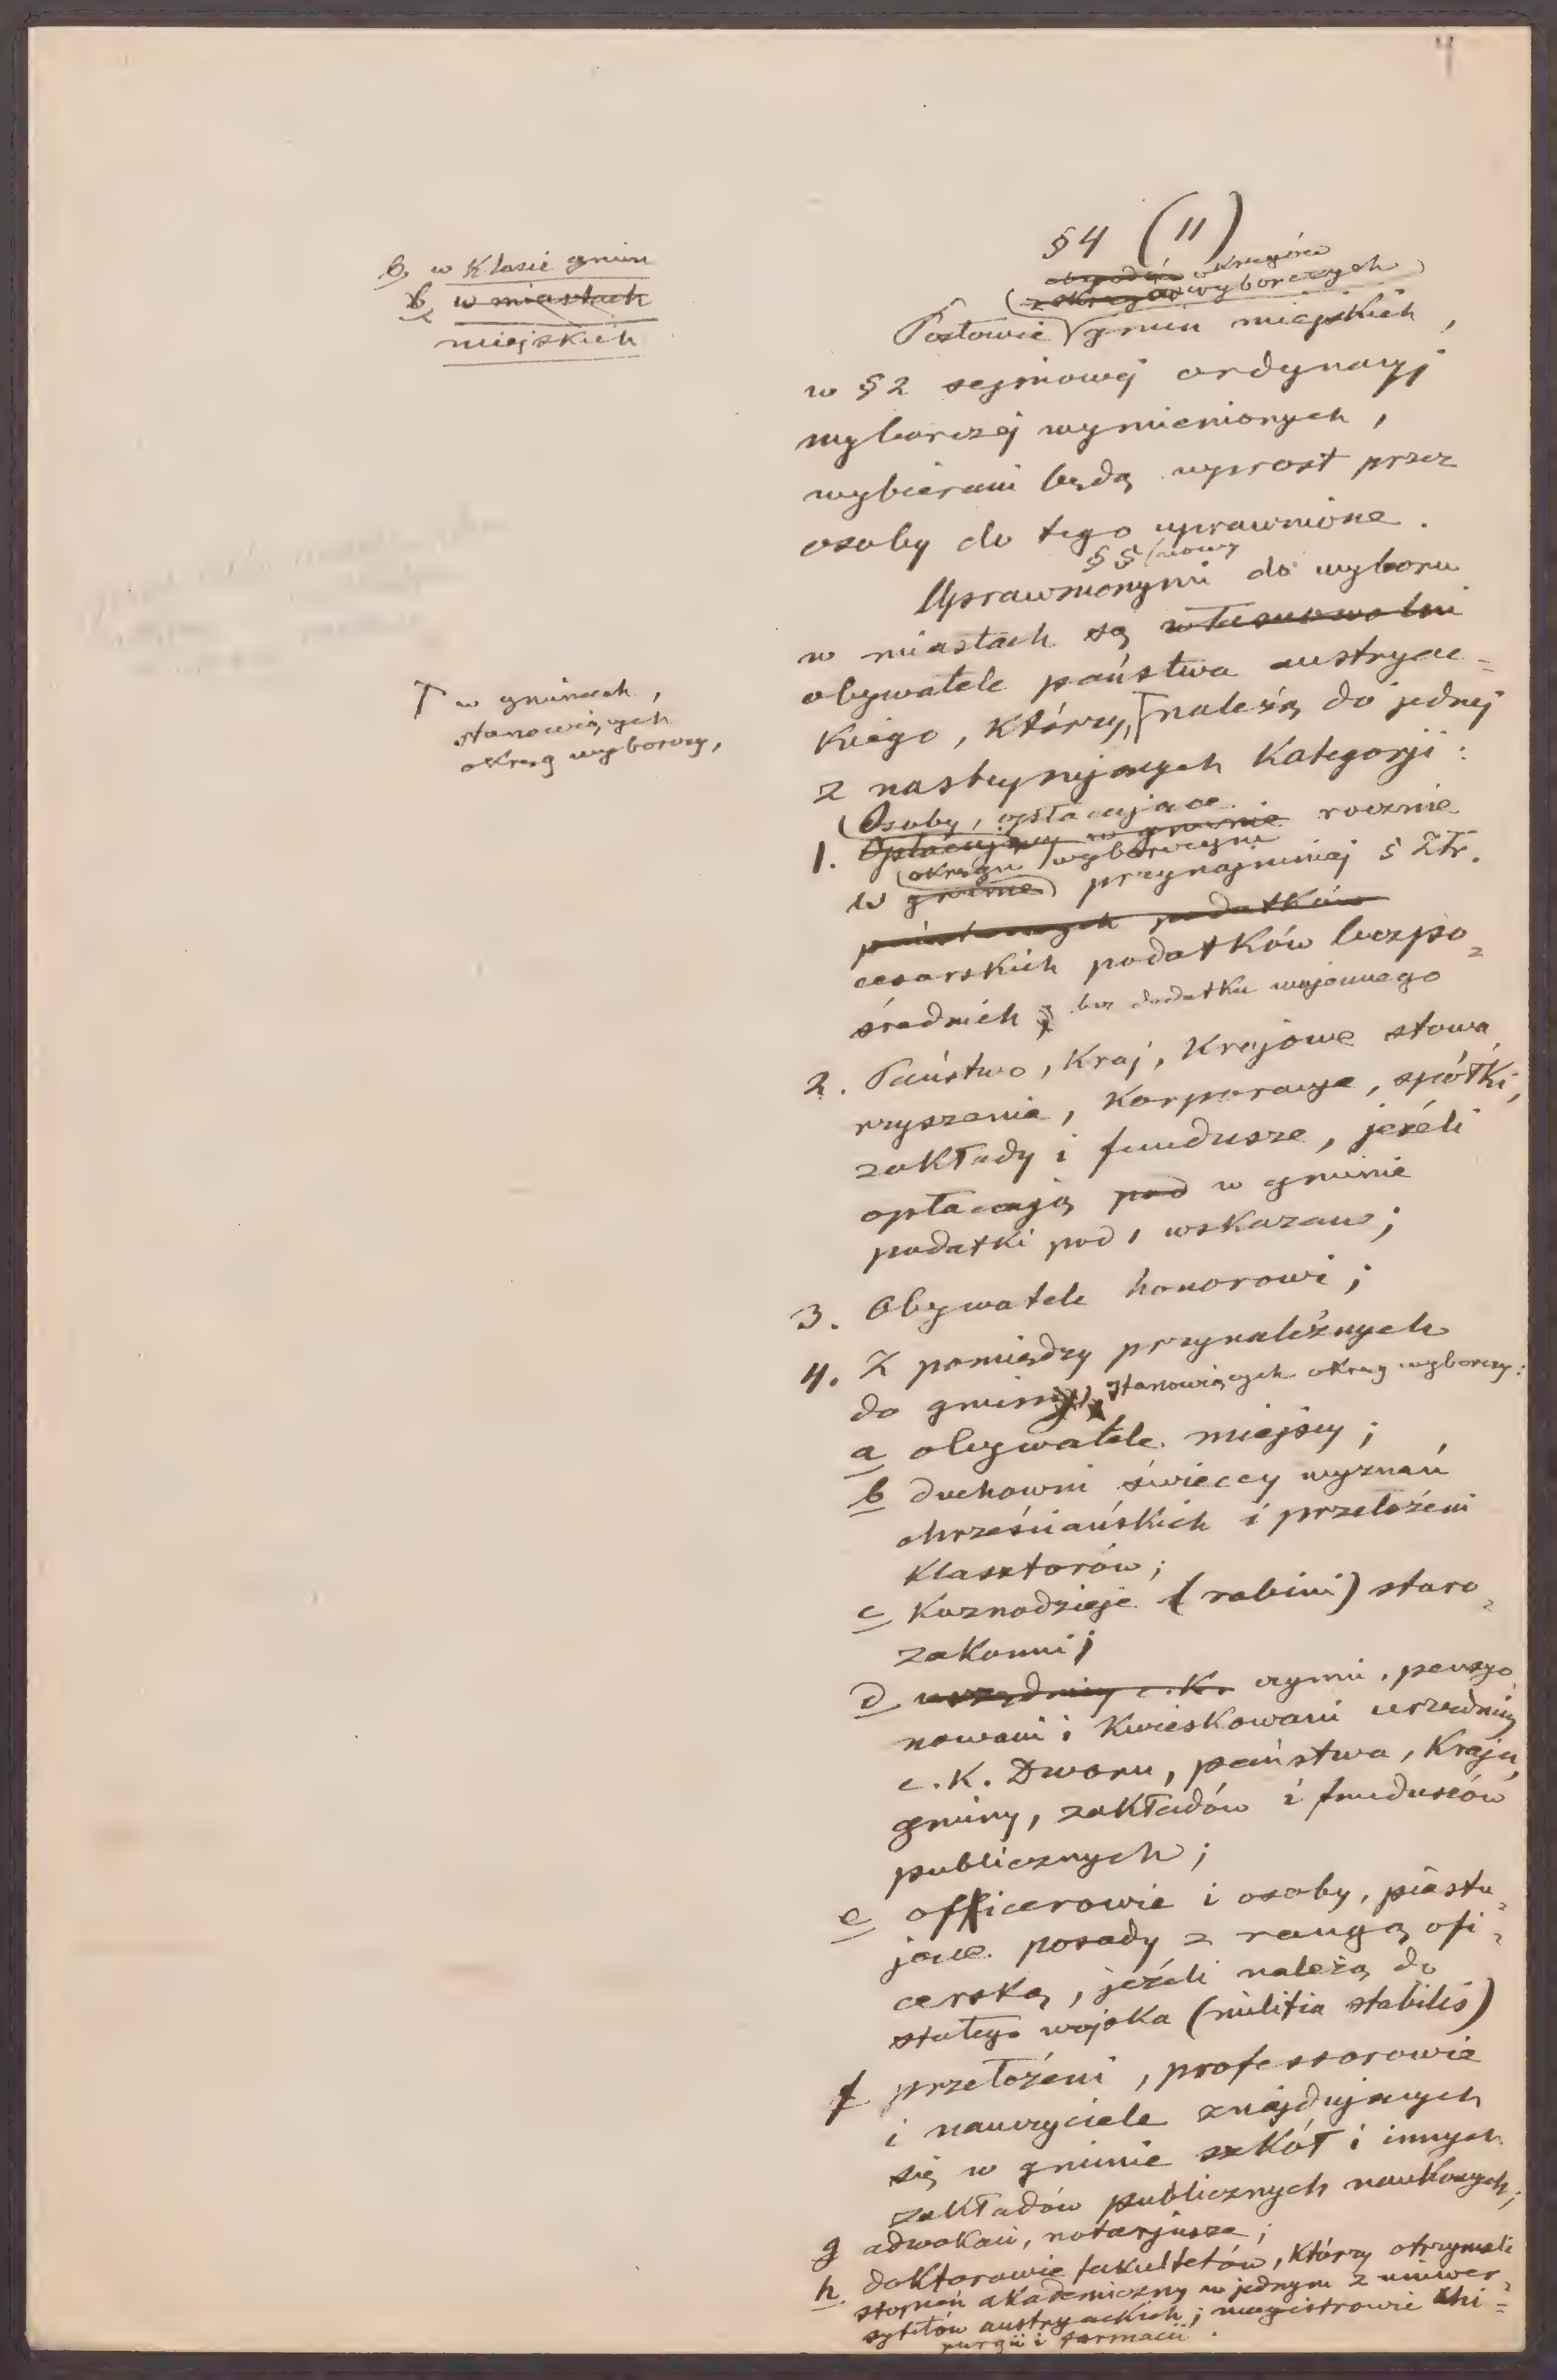 4
§4 (11)
b, w klasie gmin
b, w miastach
miejskich
okręgów
z okręgów wyborczych
Posłowie gmin miejskich,
w §2 sejmowej ordynacyj
wyborczej wymienionych,
wybierani będą wprost przez
osoby do tego uprawnione.
§5 (nowy
Uprawnionymi do wyboru
w miastach są własnowolni
obywatele państwa austryac=
kiego, którzy, należą do jednej
┌ w gminach,
stanowiących
okręg wyborczy,
z następujących kategorji:
Osoby, opłacające
1. Opłacający w gminie rocznie
okręgu wyborczym
w gminie przynajmniej 5 Złr.
państwowych podatków
cesarskich podatków bezpo=
średnich; bez dodatku wojennego
2. Państwo, Kraj, Krajowe stowa
rzyszenia, Korporacye, spółki,
zakłady i fundusze, jeżeli
opłacają pod w gminie
podatki pod 1 wskazane;
3. Obywatele honorowi;
4. Z pomiędzy przynależnych
do gmin, stanowiących okręg wyborczy:
a obywatele miejscy;
b duchowni świeccy wyznań
chrześciańskich i przełożeni
klasztorów;
c Kaznodzieje (rabini) staro=
zakonni;
d urzędnicy c.k. czynni, pensyo
nowani i kwieskowani urzędnicy
c.K. Dworu, państwa, Kraju,
gminy, zakładów i funduszów
publicznych;
e officerowie i osoby, piastu=
jące posady z rangą ofi=
cerską, jeżeli należą do
stałego wojska (militia stabilis)
f przełożeni, professorowie
i nauczyciele znajdujących
się w gminie szkół i innych
zakładów publicznych naukowych;
g adwokaci, notarjusze;
h doktorowie fakultetów, którzy otrzymali
stopień akademiczny w jednym z uniwer=
sytetów austryackich; magistrowie chi=
rurgii i farmacii.